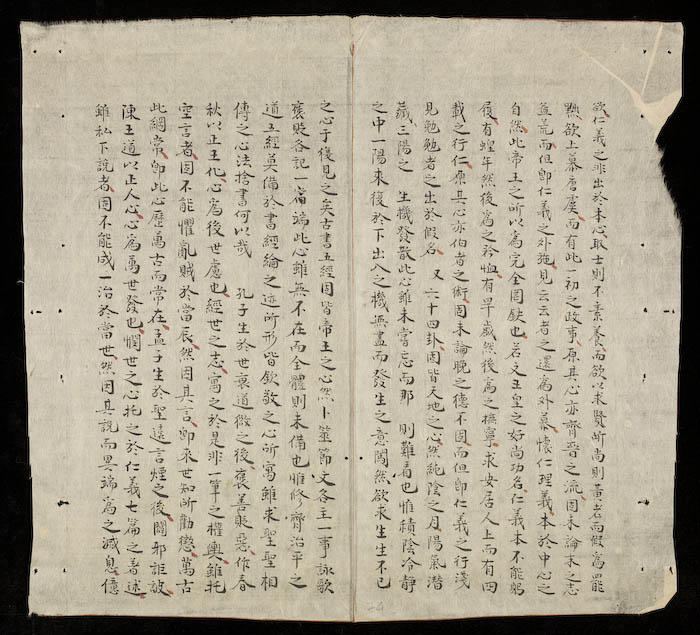 欲仁義之非出於本心取士則不素養而欲以求賢所尚則黃老而假為罷
黜欲上慕唐虞而有此一初之政事原其心亦齊晉之流固未論未之志
益荒而但即仁義之外施見云云者之還為外慕懷仁理義本於中心之
自然此帝王之所以為完全罔缺也若文王皇之好尚功名仁義本不能躬
履有蝗年然後為之矜恤有旱歲然後為之撫寧求安居人上而有四
載之行仁原其心亦伯者之術固未論晚之德不固而但即仁義之行淺
見勉勉者之出於假名 又六十四卦固皆天地之心然純陰之月陽氣潛
藏三陽之 生機發散此心雖未嘗忘而那 則難看也惟積陰冷靜
之中一陽來復於下出入之機無盡而發生之意闖然欲求生生不已
之心于復見之矣古書五經固皆帝王之心然卜筮節文各主一事詠歌
褒貶各記一篇端此心雖無不在而全體則未備也惟修齊治平之
道五經莫備於書經綸之迹所形皆欽敬之心所寓雖求聖聖相
傳之心法捨書何以哉 孔子生於世衰道微之後褒善貶惡作春
秋以正王化心為後世慮也經世之志寓之於是非一筆之權輿雖托
空言者固不能懼亂賊於當辰然因其言即來世知所勸懲萬古
此綱常即此心歷萬古而常在孟子生於聖遠言煙之後闢邪詎詖
陳王道以正人心心為萬世發也憫世之心托之於仁義七篇之著述
雖私下說者固不能成一治於當世然因其說而異端為之滅息億